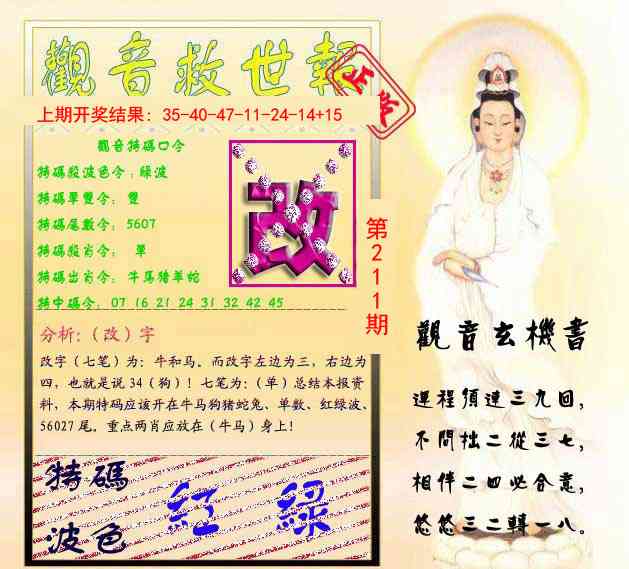 觀音救世報
正本
上期开奖结果：35-40-47-11-24-14+15
觀音特碼口令
特碼殺波色令：綠波
特碼單雙令：雙
特碼尾數令：5607
特碼殺肖令：單
特碼出肖令：牛馬豬羊蛇
特中碼令：07 16 21 24 31 32 42 45
改
第211期
分析：（改）字
改字（七笔）为：牛和马。而改字左边为三，右边为
四，也就是说34（狗）！七笔为：（单）总结本报资
料，本期特码应该开在牛马狗猪蛇兔、单数、红绿波、
56027尾。重点两肖应放在（牛马）身上！
特碼
波色
紅 綠
觀音玄機書
運程須達三九回，
不問拙二從三七，
相伴二四必合意，
悠悠三二轉一八。